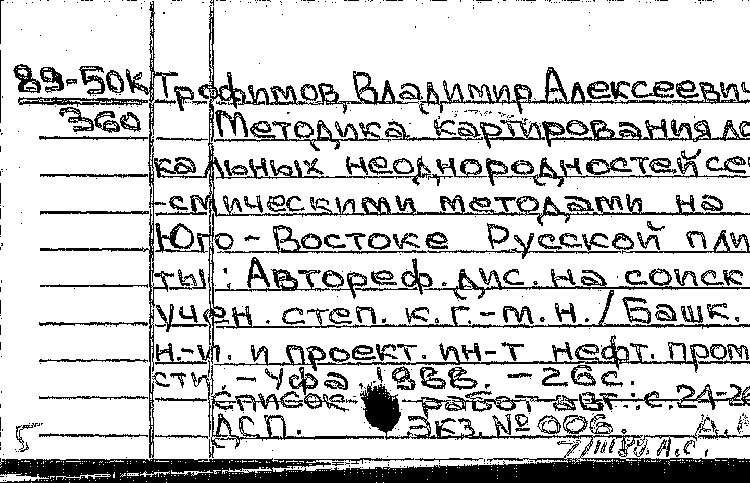 89-50К Трофимов, Владимир Алексеевич
360 Методика картирования ло
кальных неоднородностей сей
-смическими методами на
Юго-Востоке Русской пли
ты: Автореф. дис. на соиск
учен. степ. к. г.-м. н. / Башк.
н.-и. и проект. ин-т нефт. пром
сти. - Уфа. 1988. - 26с.
Список работ авт.: с. 24-26
ДСП. Экз. № 006.
5